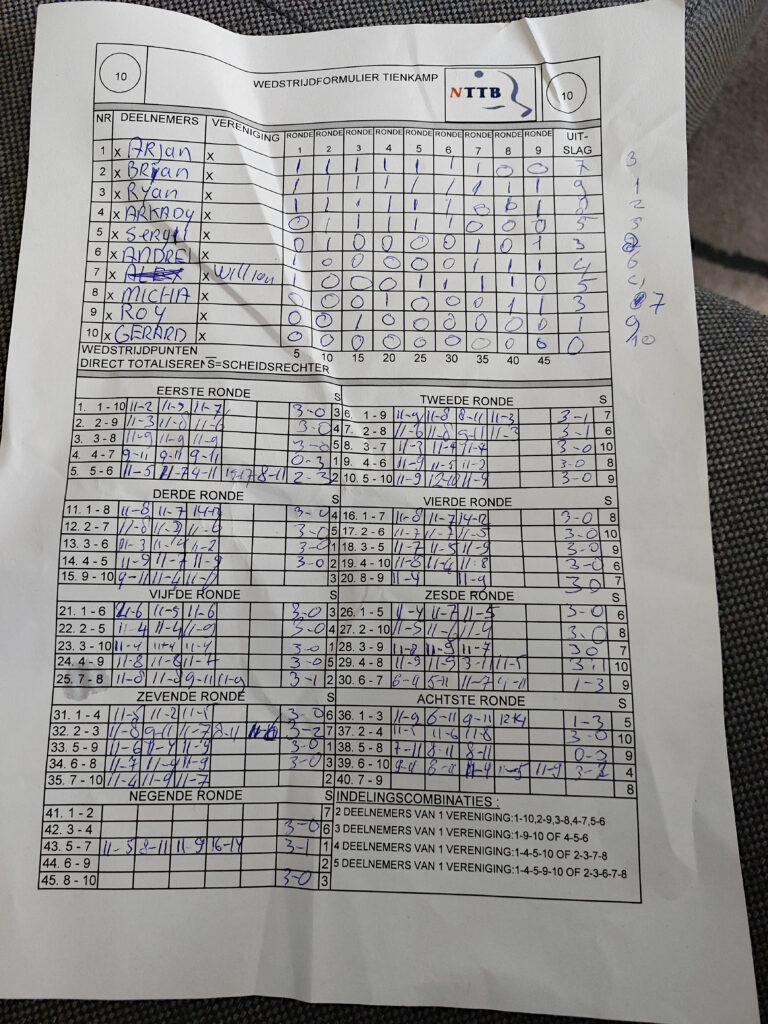 10 WEDSTRIJDFORMULIER TIENKAMP NTTB 10
NR DEELNEMERS VERENIGING RONDE 1 RONDE 2 RONDE 3 RONDE 4 RONDE 5 RONDE 6 RONDE 7 RONDE 8 RONDE 9 UIT-SLAG
1 x Arjan x 1 1 1 1 1 1 1 0 0 7 3
2 x Bryan x 1 1 1 1 1 1 1 1 1 9 1
3 x Ryan x 1 1 1 1 1 1 0 1 1 2
4 x ARKADY x 0 1 1 1 1 1 0 0 0 5
5 x x 0 1 0 0 0 0 1 0 1 3
6 x ANDRE x 1 0 0 0 0 0 1 1 1 4 6
7 x x 1 0 0 0 1 1 1 1 0 5
8 x MICHA x 0 0 0 1 0 0 0 1 1 3 7
9 x ROY x 0 0 1 0 0 0 0 0 0 1 9
10 x GERARD x 0 0 0 0 0 0 0 0 0 0 10
WEDSTRIJDPUNTEN 5 10 15 20 25 30 35 40 45
DIRECT TOTALISEREN S=SCHEIDSRECHTER
EERSTE RONDE S
1. 1 - 10 11-2 11-5 11-7 3-0 3
2. 2 - 9 11-3 11-8 11-6 3-0 4
3. 3 - 8 11-9 11-9 11-9 3-0 5
4. 4 - 7 9-11 9-11 9-11 0-3 1
5. 5 - 6 11-5 11-7 4-11 8-11 2-3 2
TWEEDE RONDE S
6. 1 - 9 11-9 11-8 8-11 11-3 3-1 7
7. 2 - 8 11-6 11-8 9-11 11-3 3-1 6
8. 3 - 7 11-3 11-4 11-4 3-0 10
9. 4 - 6 11-9 11-5 11-2 3-0 8
10. 5 - 10 11-9 12-10 11-9 3-0 9
DERDE RONDE S
11. 1 - 8 11-8 11-7 14-12 3-0 4
12. 2 - 7 11-8 11-6 3-0 5
13. 3 - 6 11-3 11-2 3-0 1
14. 4 - 5 11-9 11-7 11-9 3-0 2
15. 9 - 10 9-11 11-4 11-8 3
VIERDE RONDE S
16. 1 - 7 11-8 11-7 14-12 3-0 8
17. 2 - 6 11-7 11-7 11-5 3-0 10
18. 3 - 5 11-7 11-5 11-9 3-0 9
19. 4 - 10 11-8 11-6 11-8 3-0 6
20. 8 - 9 11-4 11-9 30 7
VIJFDE RONDE S
21. 1 - 6 11-6 11-5 11-6 3-0 3
22. 2 - 5 11-4 11-4 11-9 3-0 4
23. 3 - 10 11-4 11-4 11-4 3-0 1
24. 4 - 9 11-8 11-6 11-7 3-0 5
25. 7 - 8 11-8 11-8 9-11 11-9 3-1 2
ZESDE RONDE S
26. 1 - 5 11-4 11-7 11-5 3-0 6
27. 2 - 10 11-5 11-6 11-4 3-0 8
28. 3 - 9 11-8 11-9 11-7 30 7
29. 4 - 8 11-9 11-9 3-11 11-5 3-1 10
30. 6 - 7 6-11 5-11 11-7 4-11 1-3 9
ZEVENDE RONDE S
31. 1 - 4 11-5 11-2 11-5 3-0 6
32. 2 - 3 11-8 9-11 11-7 8-11 3-2 7
33. 5 - 9 11-6 11-4 11-9 3-0 1
34. 6 - 8 11-7 11-4 11-9 3-0 3
35. 7 - 10 11-4 11-9 11-7 2
ACHTSTE RONDE S
36. 1 - 3 11-9 6-11 9-11 1-3 5
37. 2 - 4 11-5 11-6 11-8 3-0 10
38. 5 - 8 7-11 8-11 8-11 0-3 9
39. 6 - 10 11-4 11-5 11-9 3-2 4
40. 7 - 9 8
NEGENDE RONDE S
41. 1 - 2 7
42. 3 - 4 3-0 6
43. 5 - 7 11-5 8-11 11-9 16-14 3-1 1
44. 6 - 9 2
45. 8 - 10 3-0 3
INDELINGSCOMBINATIES :
2 DEELNEMERS VAN 1 VERENIGING:1-10,2-9,3-8,4-7,5-6
3 DEELNEMERS VAN 1 VERENIGING:1-9-10 OF 4-5-6
4 DEELNEMERS VAN 1 VERENIGING:1-4-5-10 OF 2-3-7-8
5 DEELNEMERS VAN 1 VERENIGING:1-4-5-9-10 OF 2-3-6-7-8